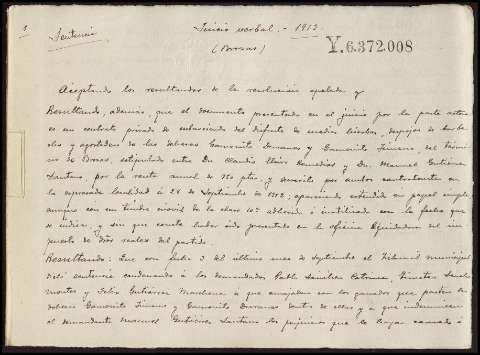 1
Sentencia
Juicio verbal. - 1913
(Brozas)
Y.6.372.008
Aceptando los resultandos de la resolucion apelada y
Resultando, además, que el documento presentado en el juicio por la parte actora
es un contrato privado de subarriendo del disfrute de media bierbas, despojos de
y agostadero de las dehesas Gamonito Damanas y Gamonito Jimeno, del térmi-
no de Brozas, estipulado entre Dn. Claudio Remedios y Dn. Manuel Gutiérrez
Santano, por la renta anual de ptas, y suscrito por ambos contratantes en
la expresada localidad á 28 de Septiembre de 1912; apareciendo extendido en papel simple
aunque con un timbre móvil de la clase 10ª adherido é inutilizado con la fecha que
se indica, y sin que conste haber sido presentado en la oficina liquidadora del im-
puesto de Dros reales del partido
Resultando: Que con fecha 3 del último mes de Septiembre el Tribunal municipal
dictó sentencia condenando á los demandados Pablo Sanchez
y Felix Gutiérrez á que con los ganados que pastan la
dehesa Gamonito Jimeno y Gamonito Damanas de ellas y á que indemnicen
al demandante Manuel Gutiérrez Santano los perjuicios que le hayan causado á